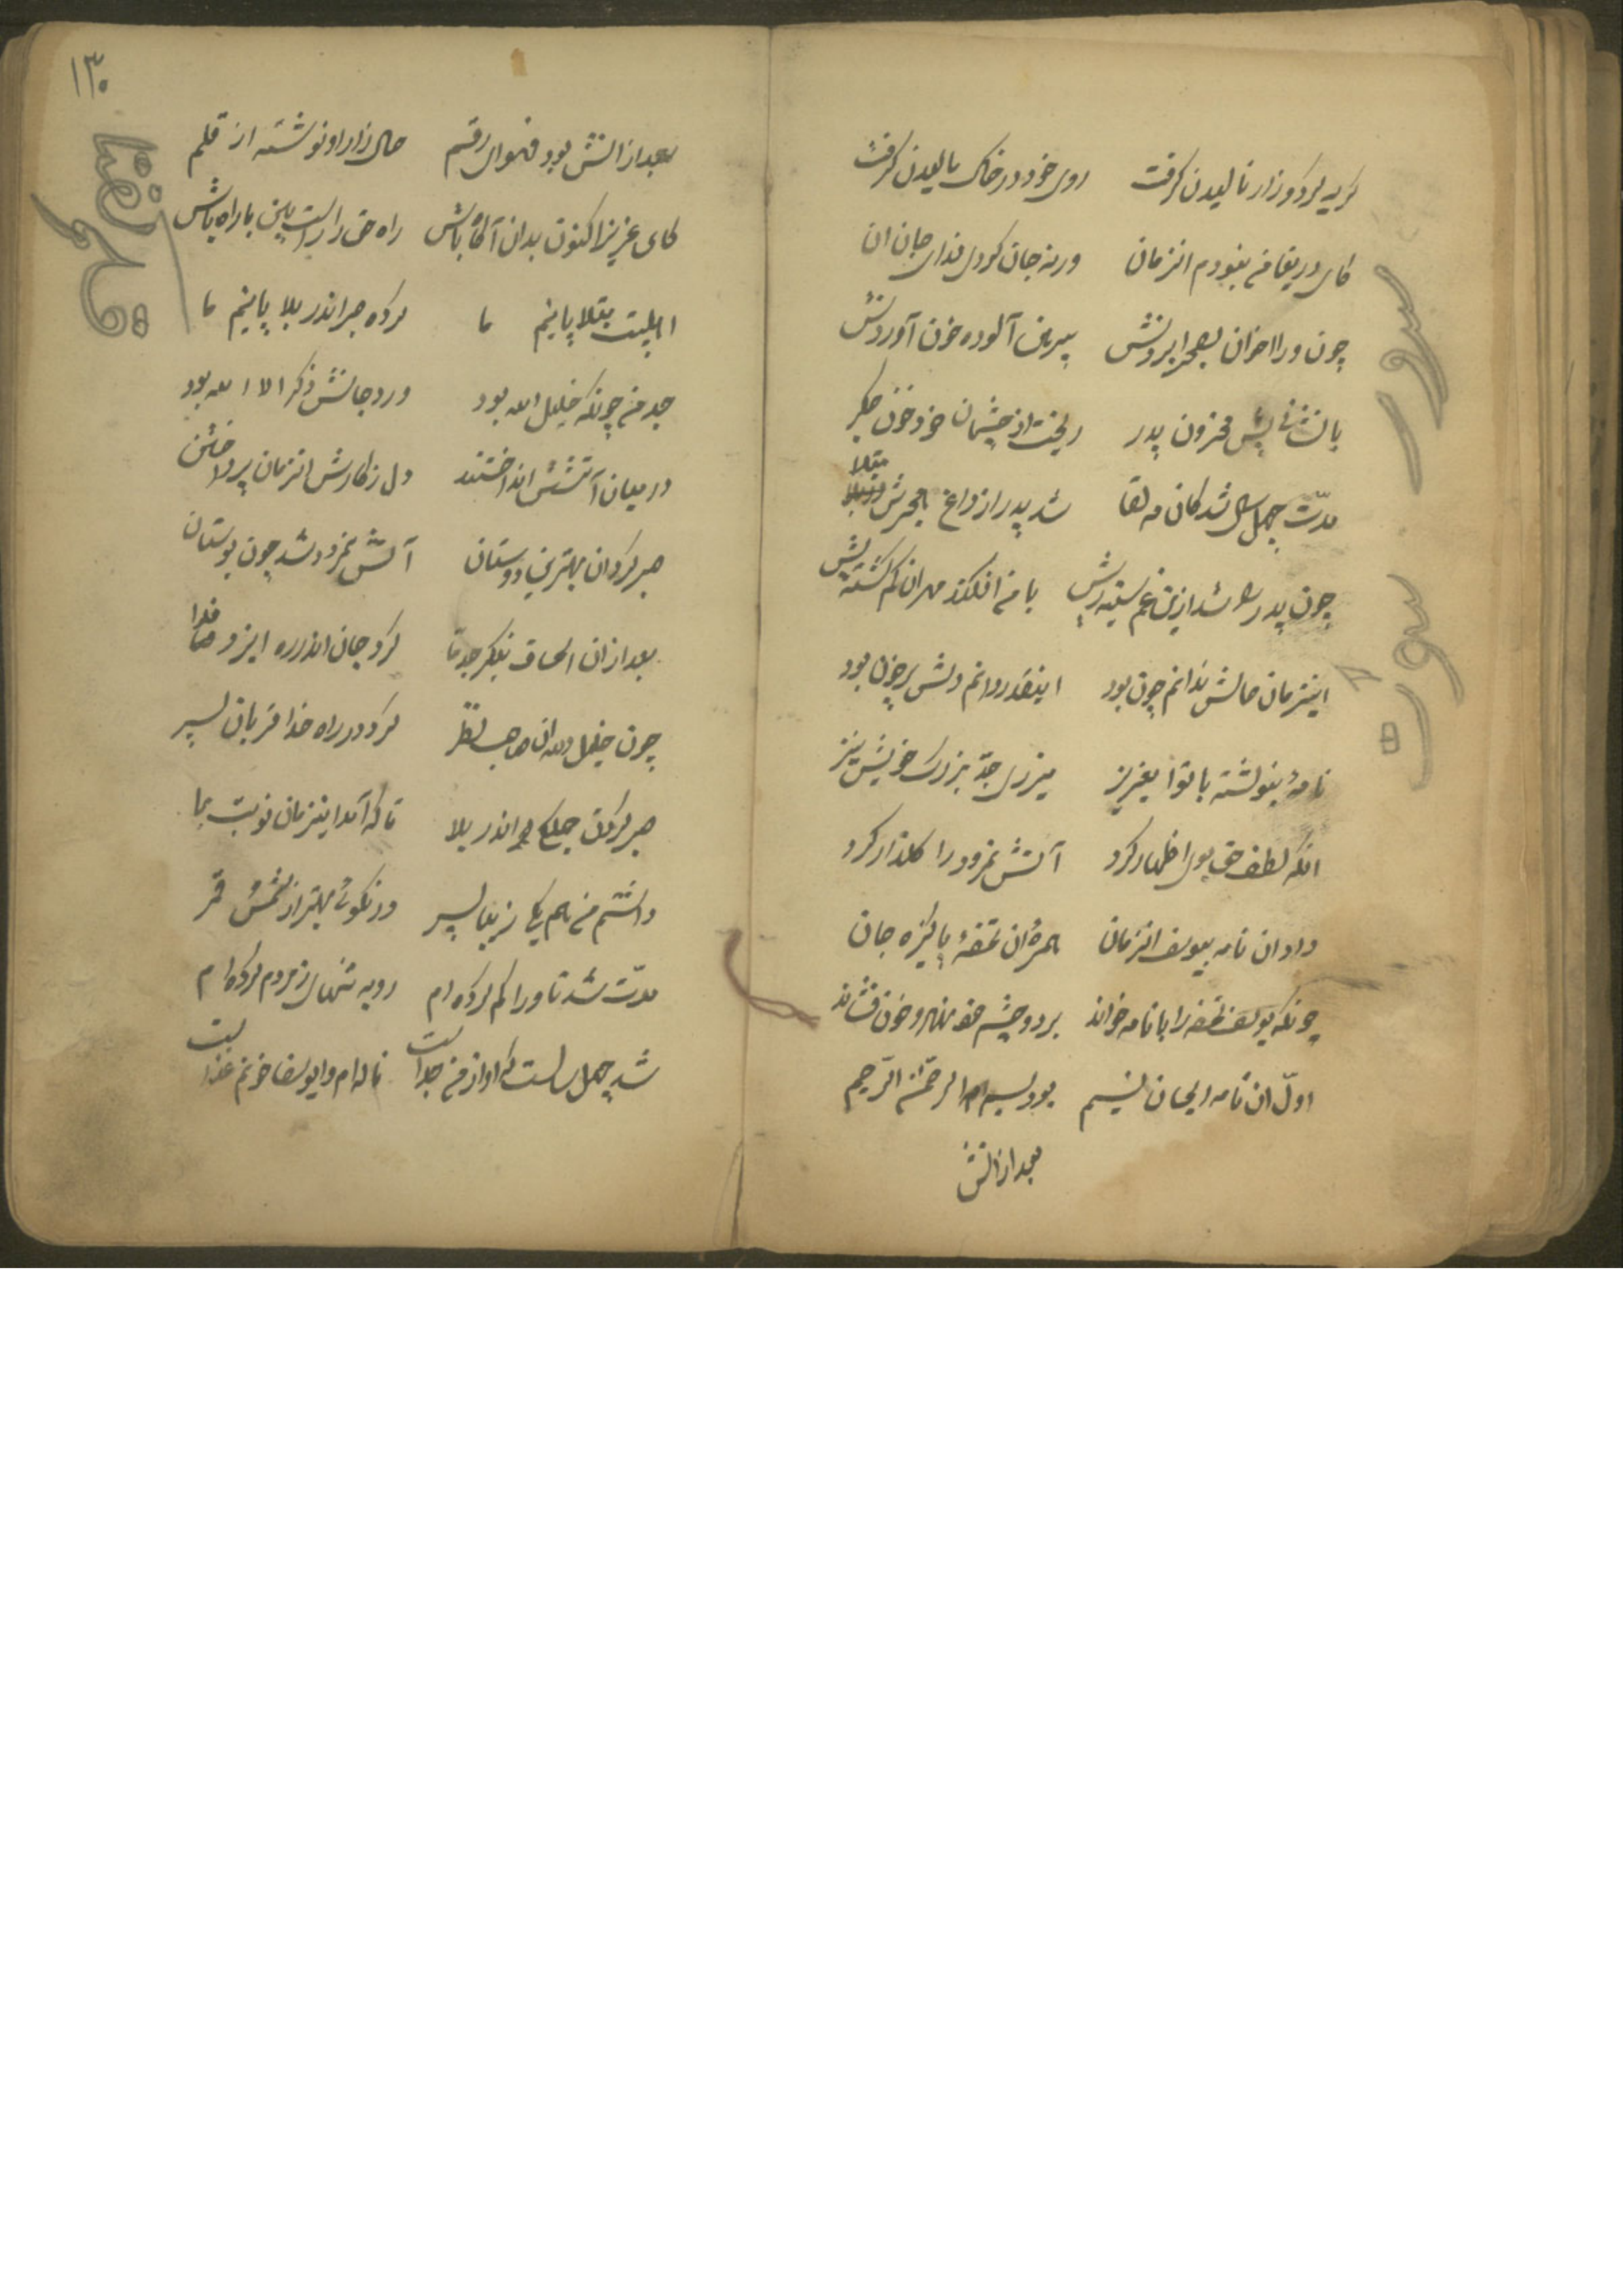 گریه کرد و زار نالیدن گرفت روی خود در خاک مالیدن گرفت
کای دریغا من نبودم انزمان ورنه جان کردی فدای جان ان
چون ورا اخوان بصحرا بردنش پیرهن آلوده خون آوردنش
پیش محزون پدر ریخت از چشمان خود خون جگر
مدّت چهل سال شد کان مه لقا شد پدر از داغ هجرش مبتلا
چون پدر شد ازین غم سینه ریش با من افکند مهر ان گم گشته پیش
اینزمان حالش ندانم چون بود اینقدر دانم دلش پر خون بود
نامهٔ بنوشته با تو ایعزیز میزدی جدّ بزرگ خویش نیز
انکه لطف حق بوی اظهار کرد آتش نمرود را گلذار کرد
داد ان نامه بیوسف انزمان همره ان تحفهٔ پاکیزه جان
چونکه یوسف تحفه را با نامه خواند بر دو چشم خود نهاد و خون فشاند
اوّل ان نامه ایجان نسیم بود بسم الله الرحمن الرّحیم
بعد از انش
۱۳۰
بعد از انش بود فحوای رقم حال زار او نوشته از قلم
کای عزیز اکنون بدان آگاه باش راه حق را راست بین با راه باش
اهلبیت مبتلا پاینم ما کرده صبر اندر بلا پاینم ما
جد من چونکه خلیل الله بود ورد جانش ذکر الا الله بود
در میان آتشش انداختند دل ز کارش انزمان پرداختن
صبر کرد ان بهترین دوستان آتش نمرود شد چون بوستان
بعد از ان اسحاق بنگر جد ما کرد جان اندر ره ایزد فدا
چون خلیل الله ان صاحب نظر کرد در راه خدا قربان پسر
صبر کردن جملگی اندر بلا تا که آمد اینزمان نوبت بما
داشتم من هم یکی زیبا پسر در نکوئی بهتر از شمس قمر
مدّت شد تا ورا گم کرده ام رو به تنهای ز مردم کرده ام
شد چهل سال است که او از من جداست ناله ام وا یوسفا خونم غذاست